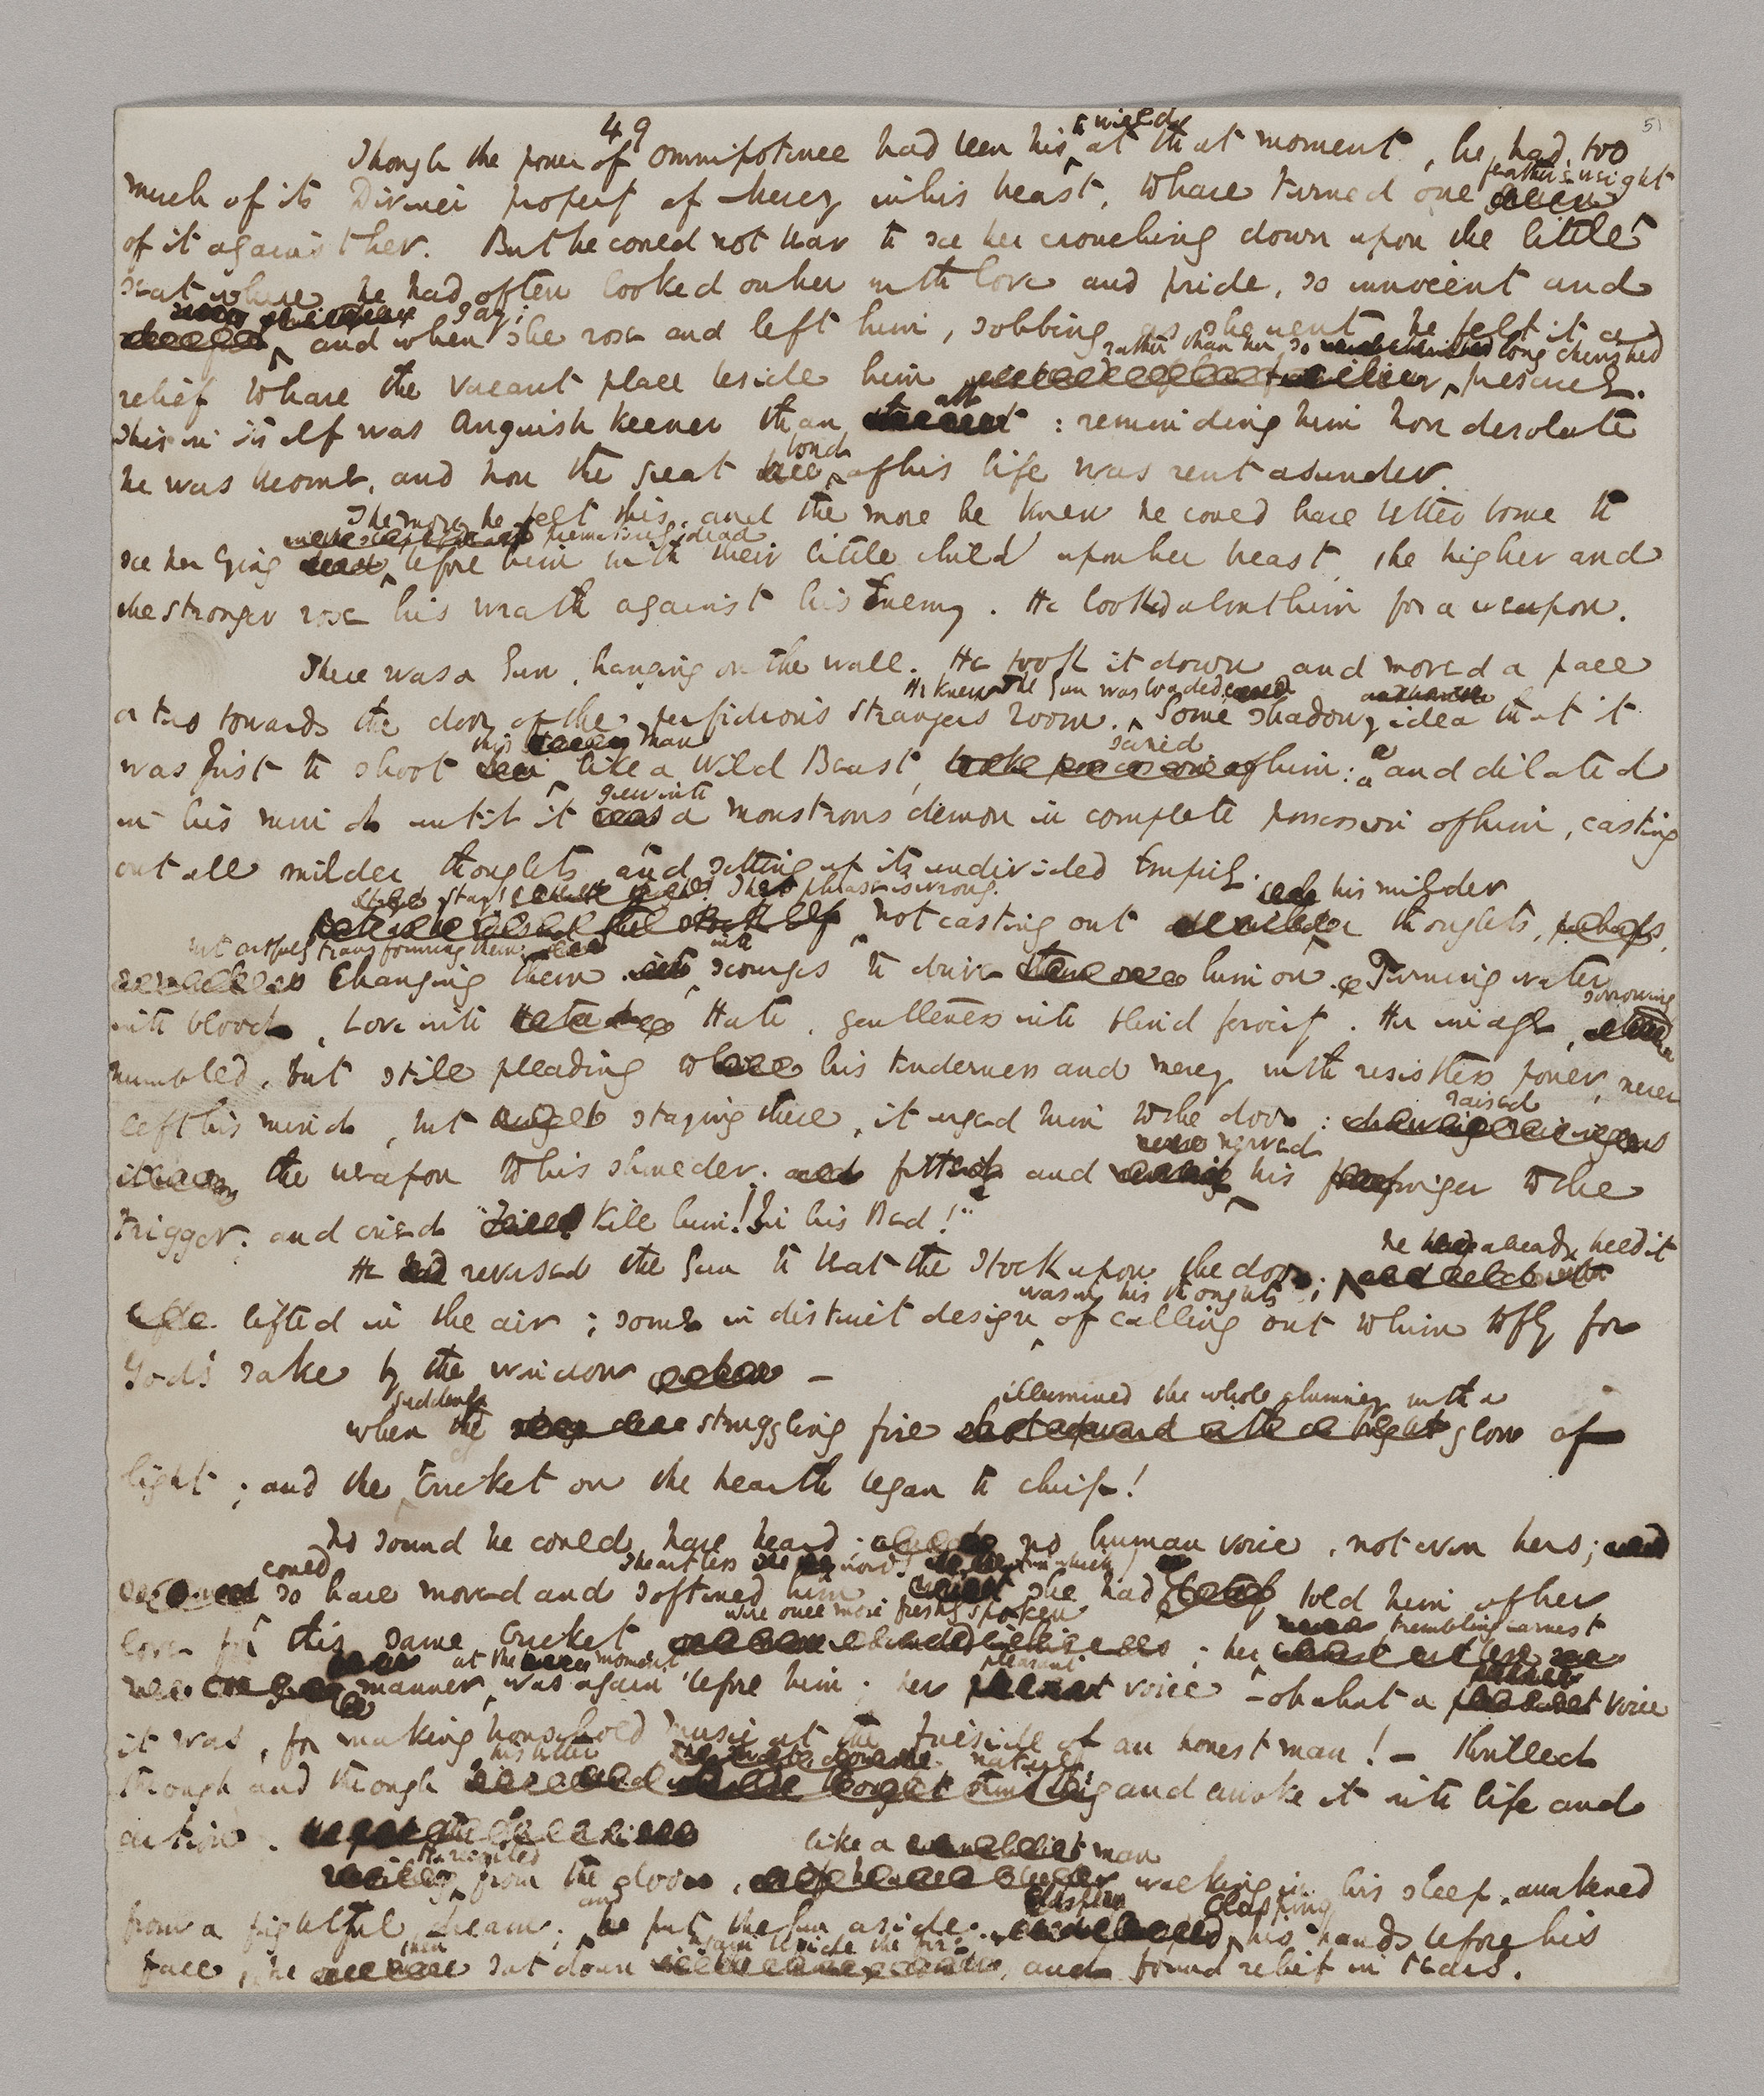 49
51
Though the power of Omnipotence had been his to wield at that moment, he had too
much of its Diviner property of Mercy in his breast, to have turned one feather's weight
of it against her. But he could not bear to see her crouching down upon the little
seat where he had often looked on her with love and pride, so innocent and
gay; and when she rose and left him, sobbing as she went, he felt it a
relief to have the vacant place beside him rather than her so long cherished presence.
This in itself was anguish keener than all: reminding him how desolate
he was become, and how the great bond of his life was rent asunder.
The more he felt this, and the more he knew he could have better borne to
see her lying prematurely dead before him with their little child upon her breast, the higher and
the stronger rose his wrath against his Enemy. He looked about him for a weapon.
There was a Gun, hanging on the wall. He took it down and moved a pace
or two towards the door of the perfidious Stranger's room. He knew the Gun was loaded. Some shadowy idea that it
was just to shoot this man like a Wild Beast, seized him: and dilated
in his mind until it grew into a monstrous demon in complete possession of him, casting
out all milder thoughts and setting up its undivided Empire.
That phrase is wrong. not casting out his milder thoughts,
but artfully transforming them. Changing them into scourges to drive him on. Turning water
into blood, Love into Hate, gentleness into blind ferocity. Her image, sorrowing
humbled, but still pleading to his tenderness and mercy with resistless power, never
left his mind, but staying there, it urged him to the door: raised
the weapon to his shoulder; fitted and nerved his finger to the
trigger; and cried "Kill him! In his Bed!"
He reversed the Gun to beat the Stock upon the door; he already held it
lifted in the air; some indistinct design was in his thoughts of calling out to him to fly for
God's sake by the window –
when suddenly the struggling fire illumined the whole chimney with a glow of
light; and the Cricket on the hearth began to chirp!
No sound he could have heard; no human voice, not even hers;
could so have moved and softened him. The artless words in which she had told him of her
love for this same Cricket were once more freshly spoken; her trembling earnest
manner at the moment, was again before him; her pleasant voice – oh what a voice
it was, for making household music at the fireside of an honest man! – thrilled
through and through his better nature, and awoke it into life and
action.
He recoiled from the door, like a man walking in his sleep, awakened
from a frightful dream; and put the Gun aside. Clasping his hands before his
face, he then sat down again beside the fire, and found relief in tears.